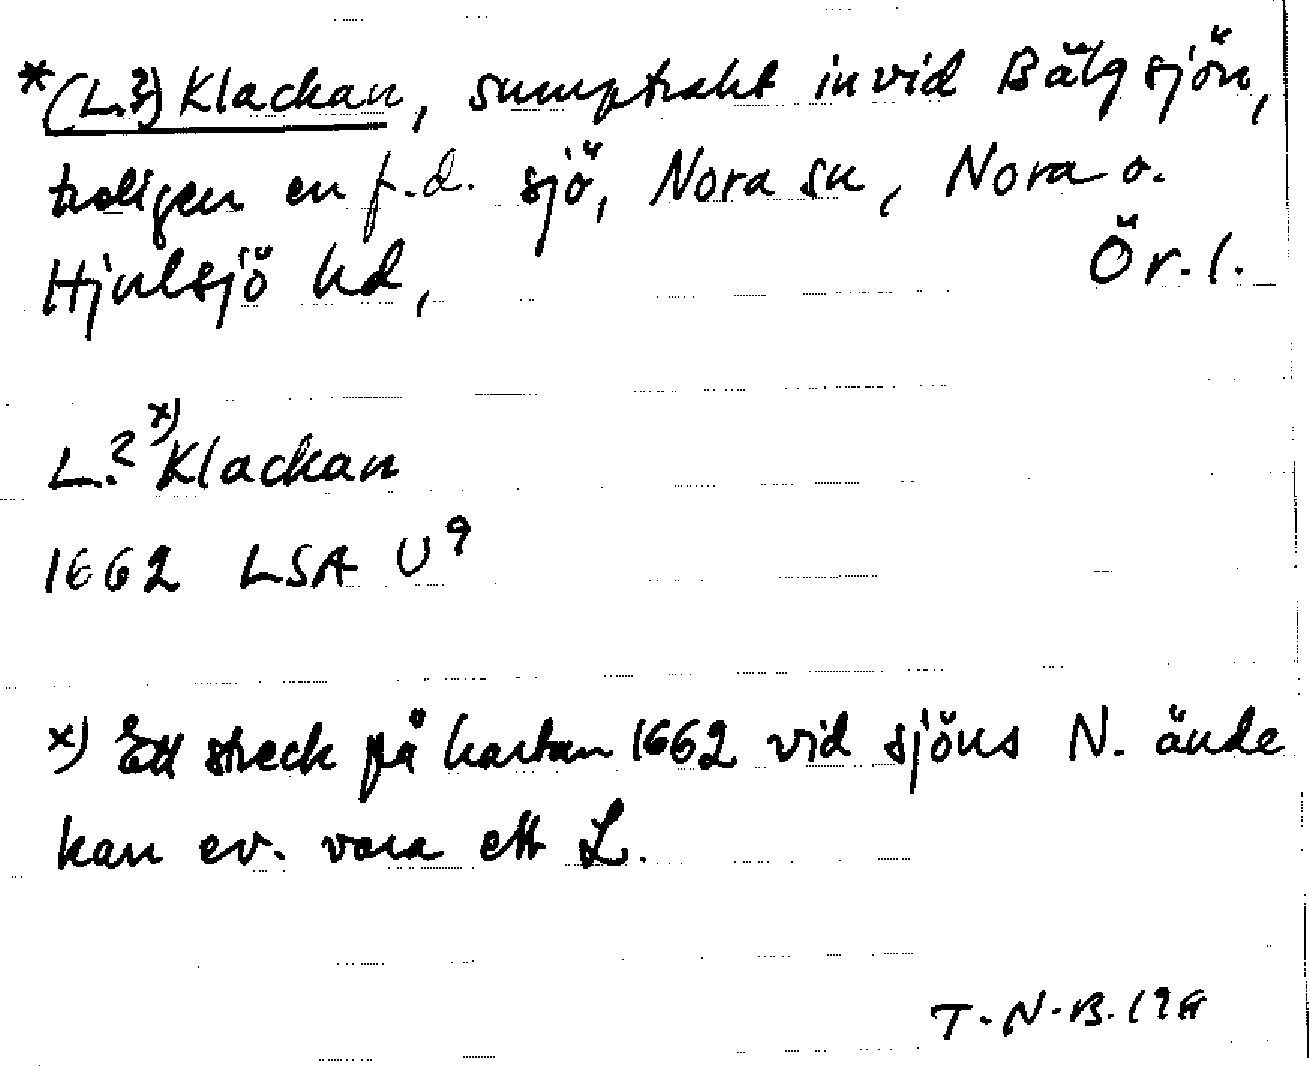 *(L.?) Klackan, sumptrakt invid Bälgsjön,
troligen en f.d. sjö, Nora sn, Nora o.
Hjulsjö hd, Ör. l.
L.? x) Klackan
1662 LSA U9
x) Ett streck på kartan 1662 vid sjöns N. ände
kan ev. vara ett L.
T.N.B.